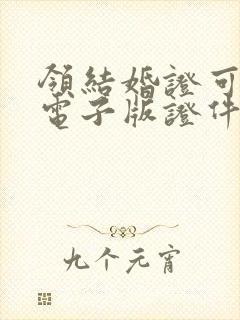 領結婚證可
電子版證件
九个元宵